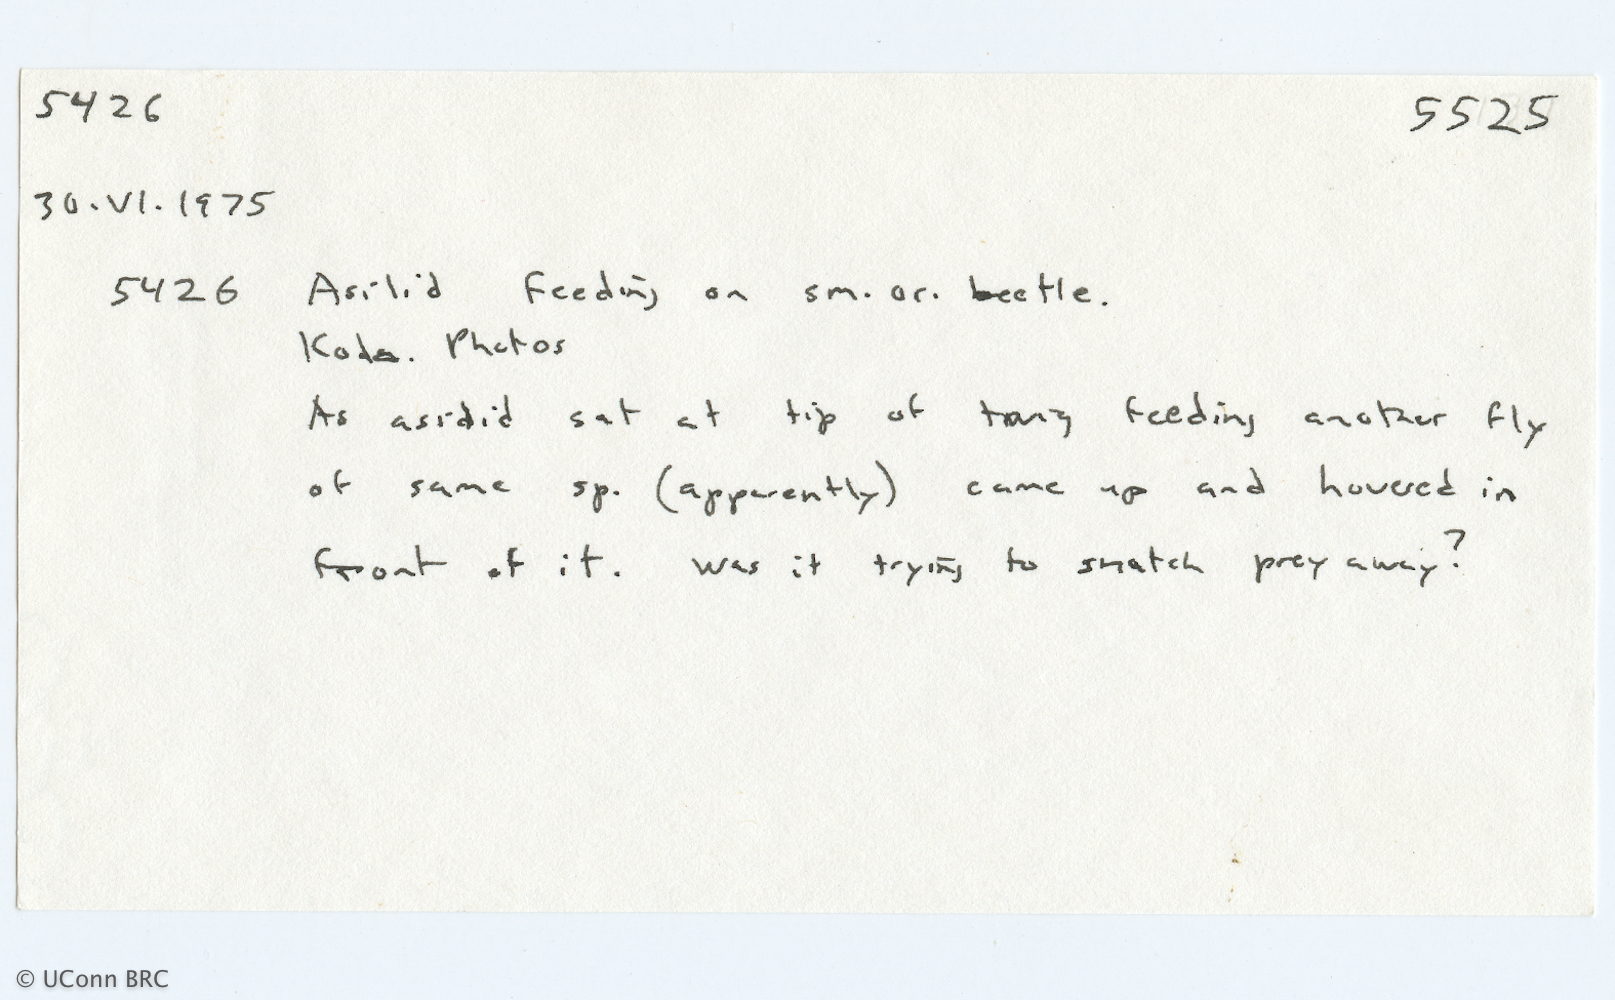 5426 5525
30.VI.1975
5426 Asilid feeding on sm. or. beetle.
Koda. Photos
As asidid sat at tip of twig feeding another fly
of same sp. (apparently) came up and hovered in
front of it. Was it trying to snatch prey away?
© UConn BRC